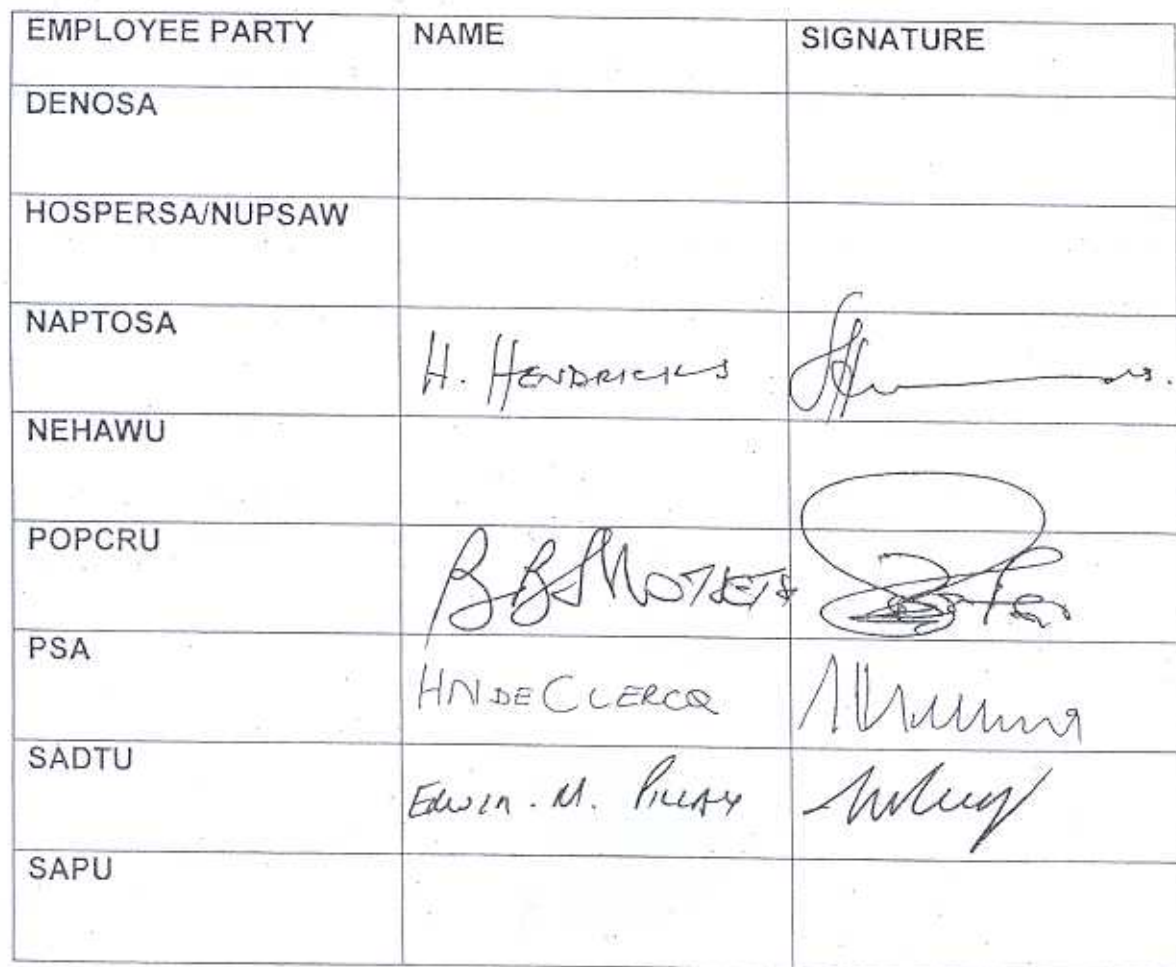 EMPLOYEE PARTY NAME SIGNATURE
DENOSA
HOSPERSA/NUPSAW
NAPTOSA H. HENDRICKS
NEHAWU
POPCRU B B
PSA HN DE CLERCQ
SADTU EDWIN. M. PILLAY
SAPU